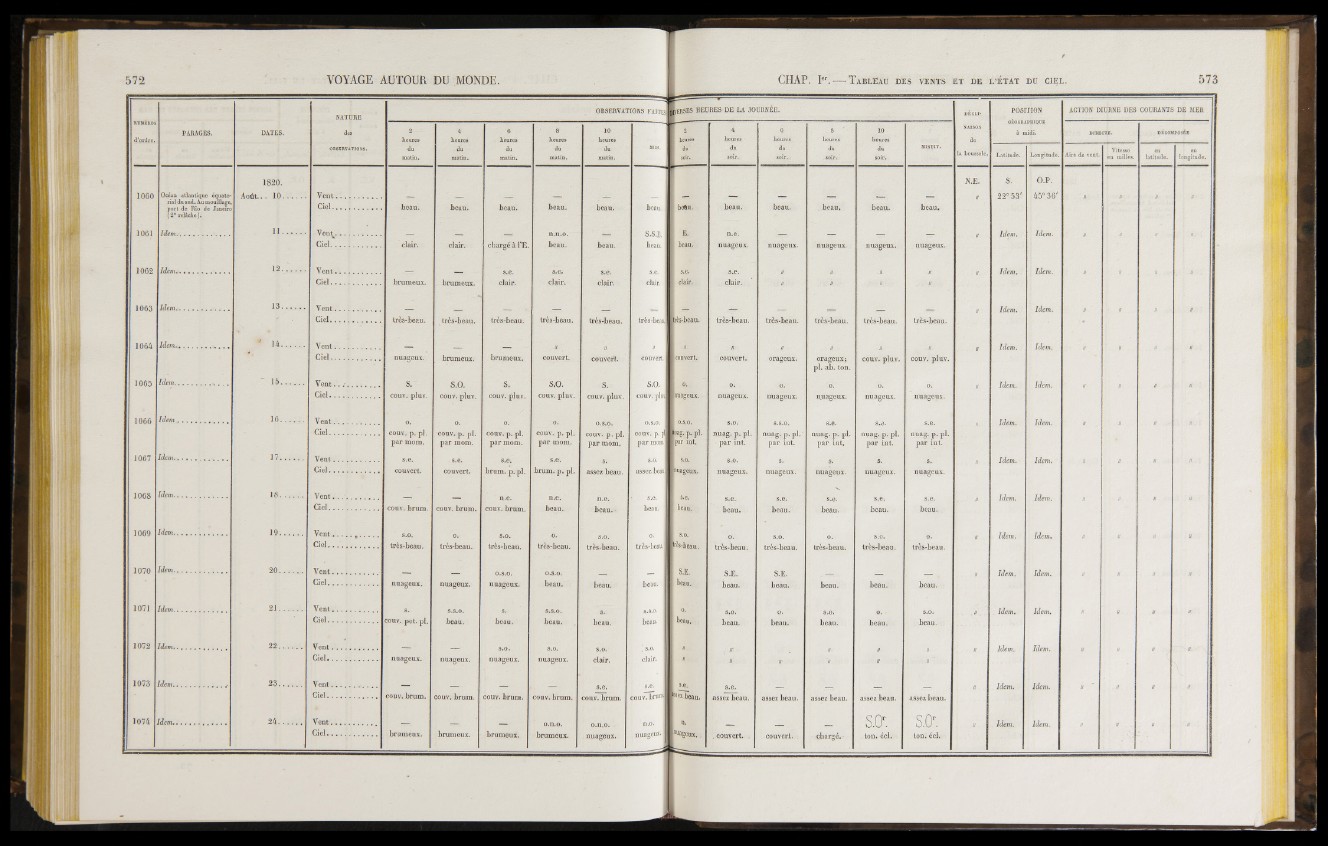 572 VOYAGE AUTOUR DU MONDE.
NUMÉROS d'ordre. PARAGES. DATES. NATURE des OBSERVATIONS. OBSERVATIONS FAITES
2 heures du matin. 4 heures du matin. 6 heures du matin. 8 heures du matin. 10 heures du matin. MIDI.
1820.
1060 Océan atlantique équatorial du sud. Au mouillage, port de Rio de Janeiro [2e relâche]. Août... 10...... Vent — — — — — —
Ciel beau. beau. beau. beau. beau. beau.
1061 Idem. 11...... Vent — — — n.n.o. — S.S.E.
Ciel clair. clair. chargé à l'E. beau. beau. beau.
1062 Idem. 12...... Vent — — s.e. s.e. s.e. s.e.
Ciel brumeux. brumeux. clair. clair. clair. clair.
1063 Idem. 13...... Vent — — — — — —
Ciel très-beau. très-beau. très-beau. très-beau. très-beau. très-beau.
1064 Idem. 14...... Vent — — —
Ciel nuageux. brumeux. brumeux. couvert. couvert. couvert.
1065 Idem. 15...... Vent S. S.O. S. S.O. S. S.O.
Ciel couv. pluv. couv. pluv. couv. pluv. couv. pluv. couv. pluv. couv. pluv.
1066 Idem. 16...... Vent o. o. o. o. o.s.o. o.s.o.
Ciel couv. p. pl. couv. p. pl. couv. p. pl. couv. p. pl. couv. p. pl. couv. p. pl
par mom. par mom. par mom. par mom. par mom. par mom
1067 Idem. 17...... Vent s.e. s.e. s.e. s.e. s. s.o.
Ciel couvert. couvert. brum. p. pl. brum. p. pl. assez beau. assez beau
1068 Idem. 18...... Vent — — n.e. n.e. n.e. s.e.
Ciel couv. brum. couv. brum. couv. brum. beau. beau. beau.
1069 Idem. 19...... Vent s.o. o. s.o. o. s.o. o.
Ciel très-beau. très-beau. très-beau. très-beau. très-beau. très-beau
1070 Idem. 20...... Vent — — o.s.o. o.s.o. — —
Ciel nuageux. nuageux. nuageux. beau. beau. beau.
1071 Idem. 21...... Vent s. s.s.o. s. s.s.o. s. s.s.o.
Ciel couv. pet. pl. beau. beau. beau. beau. beau
1072 Idem. 22...... Vent — — s.o. s.o. s.o. s.o.
Ciel nuageux. nuageux. nuageux. nuageux. clair. clair.
1073 Idem. 23...... Vent — — — — s.e. s.e.
Ciel couv. brum. couv. brum. couv. brum. couv. brum. couv. brum. couv. brum.
1074 Idem. 24...... Vent — — — o.n.o. o.n.o. n.o.
Ciel brumeux. brumeux. brumeux. brumeux. nuageux. nuageux.
CHAP. Ier. — TABLEAU DES VENTS ET DE L'ÉTAT DU CIEL. 573
DIVERSES HEURES DE LA JOURNÉE. POSITION GÉOGRAPHIQUE à midi. ACTION DIURNE DES COURANTS DE MER
2 heures du soir. 4 heures du soir. 6 heures du soir. 8 heures du soir. 10 heures du soir. MINUIT. DÉCLINAISON de la boussole. Latitude. Longitude. DIRECTE. DÉCOMPOSÉE
Aire de vent. Vitesse en milles. en latitude. en longitude.
N.E. S. O.P.
— — — — — — 22° 53' 45° 36'
beau. beau. beau. beau. beau. beau.
E. n.e. — — — — Idem. Idem.
beau. nuageux. nuageux. nuageux. nuageux. nuageux.
s.e. s.e. Idem. Idem.
clair. clair.
— — — — — — Idem. Idem.
très-beau. très-beau. très-beau. très-beau. très-beau. très-beau.
Idem. Idem.
couvert. couvert. orageux. orageux; couv. pluv. couv. pluv.
pl. ab. ton.
o. o. o. o. o. o. Idem. Idem.
nuageux. nuageux. nuageux. nuageux. nuageux. nuageux.
o.s.o. s.o. s.s.o. s.e. s.e. s.e. Idem. Idem.
nuag. p. pl. nuag. p. pl. nuag. p. pl. nuag. p. pl. nuag. p. pl. nuag. p. pl.
par int. par int. par int. par int. par int. par int.
s.o. s.o. s. s. s. s. Idem. Idem.
nuageux. nuageux. nuageux. nuageux. nuageux. nuageux.
s.e. s.e. s.e. s.e. s.e. s.e. Idem. Idem.
beau. beau. beau. beau. beau. beau.
s.o. o. s.o. o. s.o. o. Idem. Idem.
très-beau. très-beau. très-beau. très-beau. très-beau. très-beau.
S.E. S.E. S.E. — — — Idem. Idem.
beau. beau. beau. beau. beau. beau.
o. s.o. o. s.o. o. s.o. Idem. Idem.
beau. beau. beau. beau. beau. beau.
Idem. Idem.
s.e. s.e. — — — — Idem. Idem.
assez beau. assez beau. assez beau. assez beau. assez beau. assez beau.
o. — — — S.Or. S.Or. Idem. Idem.
nuageux. couvert. couvert. chargé. ton. écl. ton. écl.